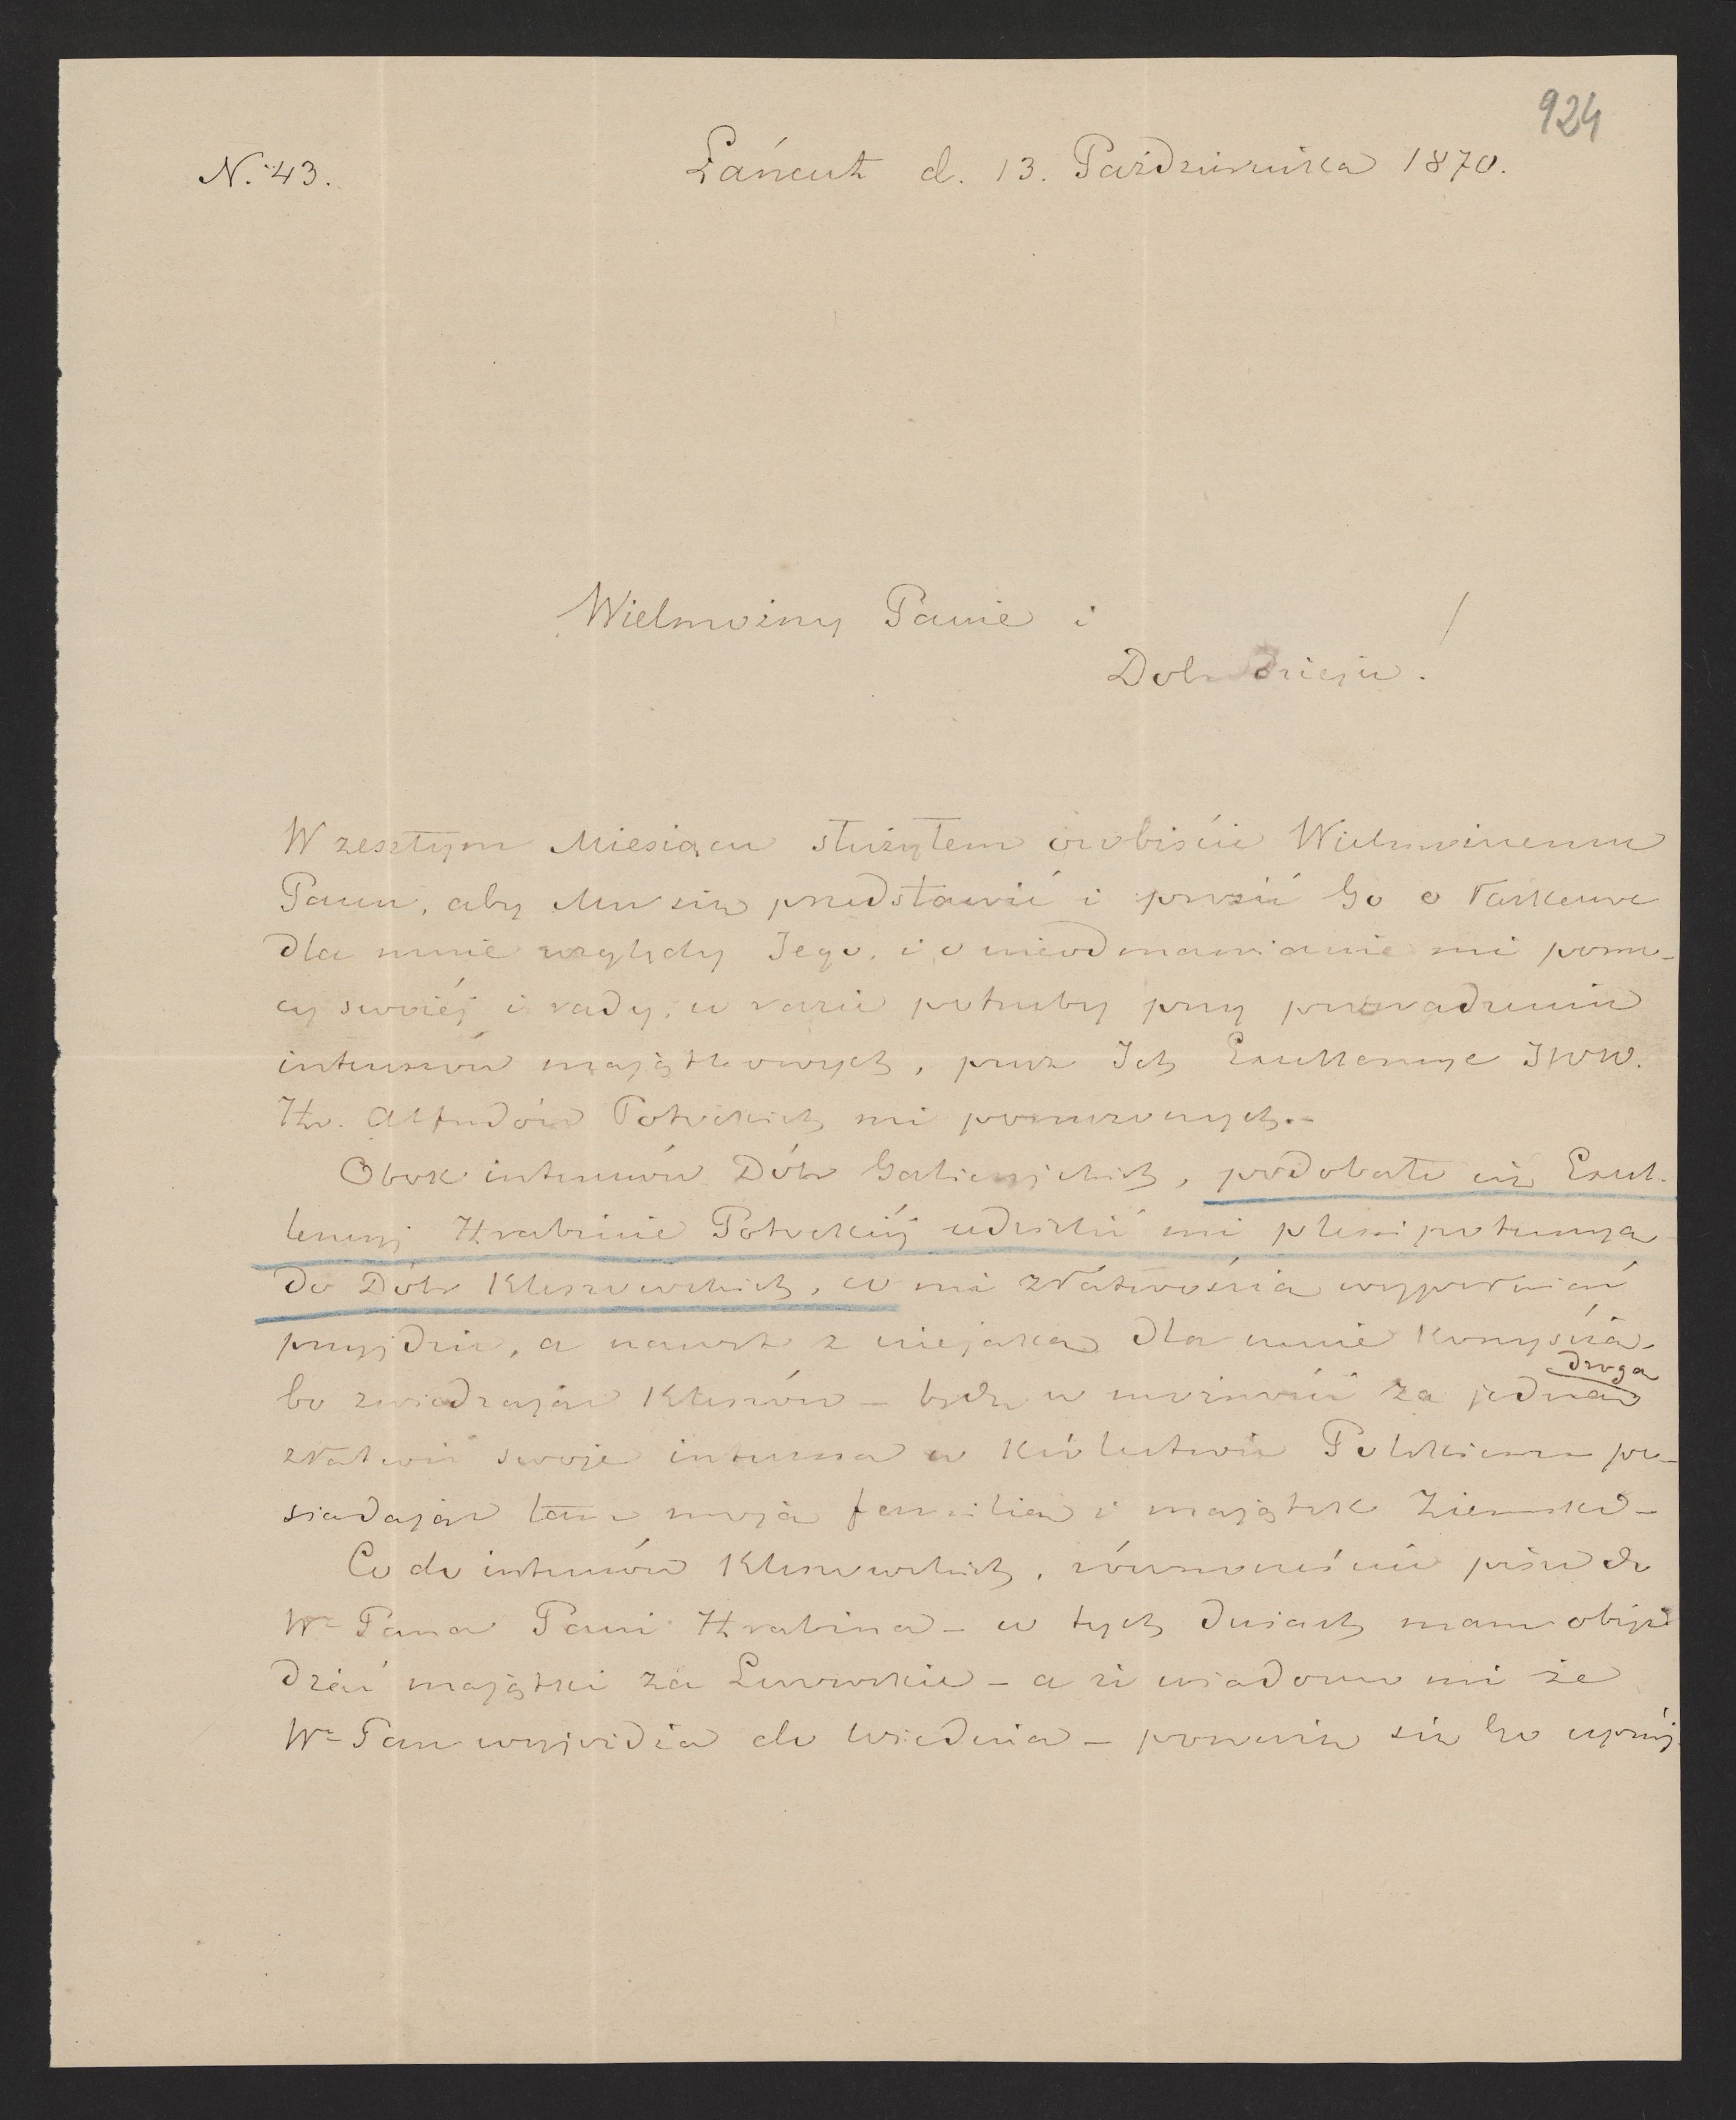 924
N. 43.
Łańcut d. 13. Października 1870.
Wielmożny Panie i
Dobrodzieju. /
W zeszłym Miesiącu służyłem osobiście Wielmożnemu
Panu, aby Mu się przedstawić i prosić Go o łaskawe
dla mnie względy Jego, i o nieodmawianie mi pomo-
cy swoiéj i rady, w razie potrzeby przy prowadzeniu
interesów majątkowych, przez Ich Excellencye JWW.
Hr. Alfredów Potockich mi poruczonych.–
Obok interesów Dóbr Galicyjskich, podobało się Excel-
lencyi Hrabinie Potockiéj udzielić mi plenipotencya
do Dóbr Kleszowskich, co mi z łatwością wypełniać
przyjdzie, a nawet z niejaką dla mnie korzyścią,
bo zwiedzając Kleszów – będę w możności za jedną
drogą
załatwić swoje interessa w Królestwie Polskiem po-
siadając tam moją familią i majątek Ziemski –
Co do interesów Kleszowskich, równocześnie pisze do
Wo Pana Pani Hrabina – w tych dniach mam objeż
dzać majątki za Lwowskie – a że wiadomo mi że
Wo Pan wyjeżdża do Wiednia – poważam się Go uprzéj